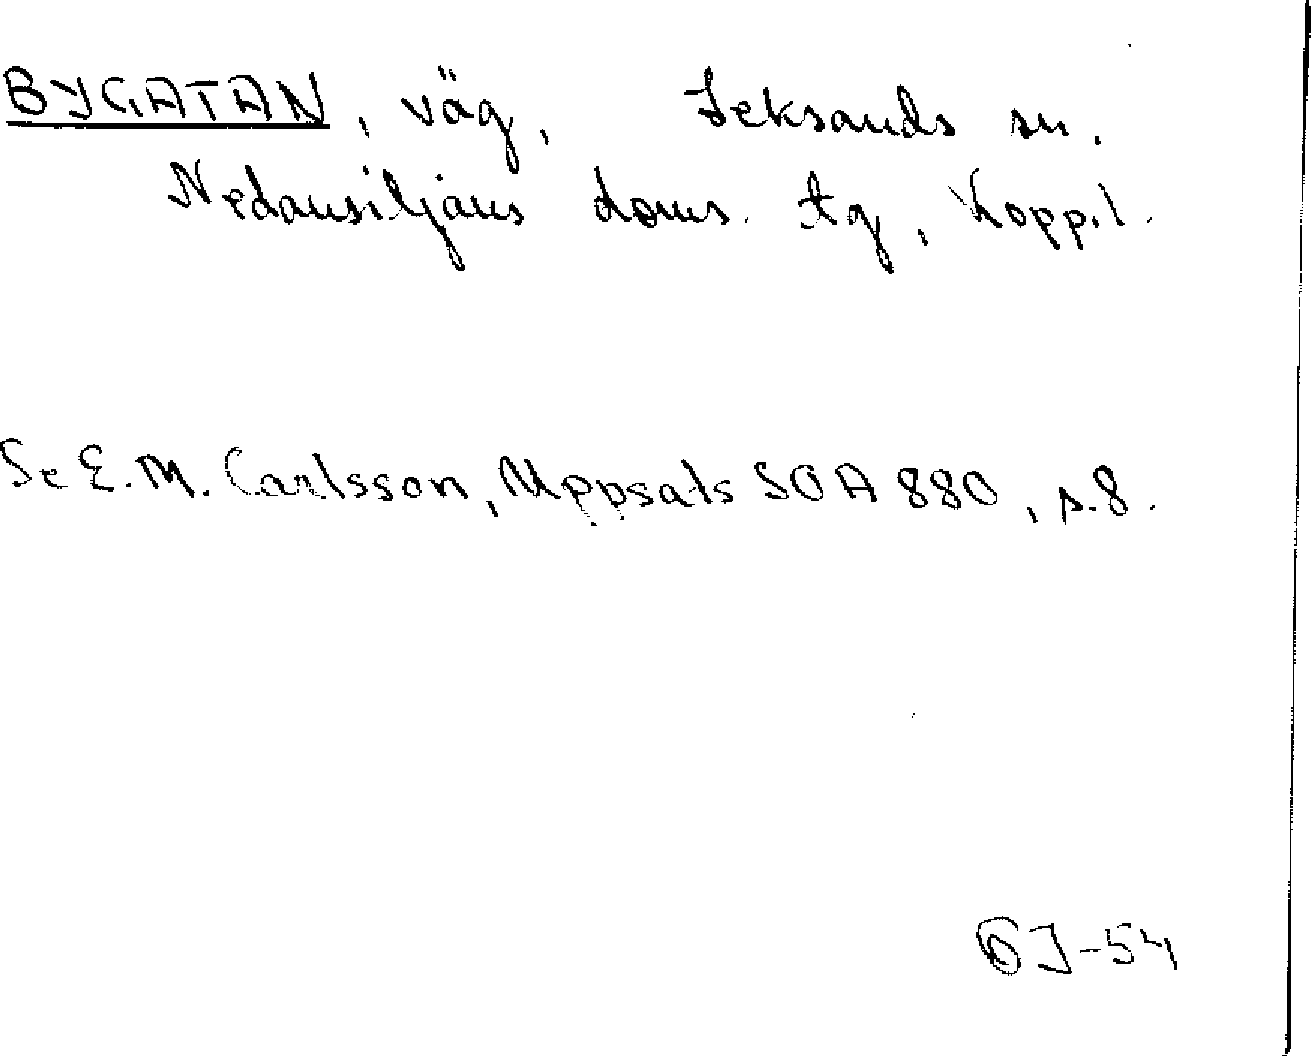 BYGATAN, väg, Leksands sn.
Nedansiljans doms. tg, Kopp.l.
Se E.M. Carlsson, Uppsats SOA 880, s.8.
GJ-54